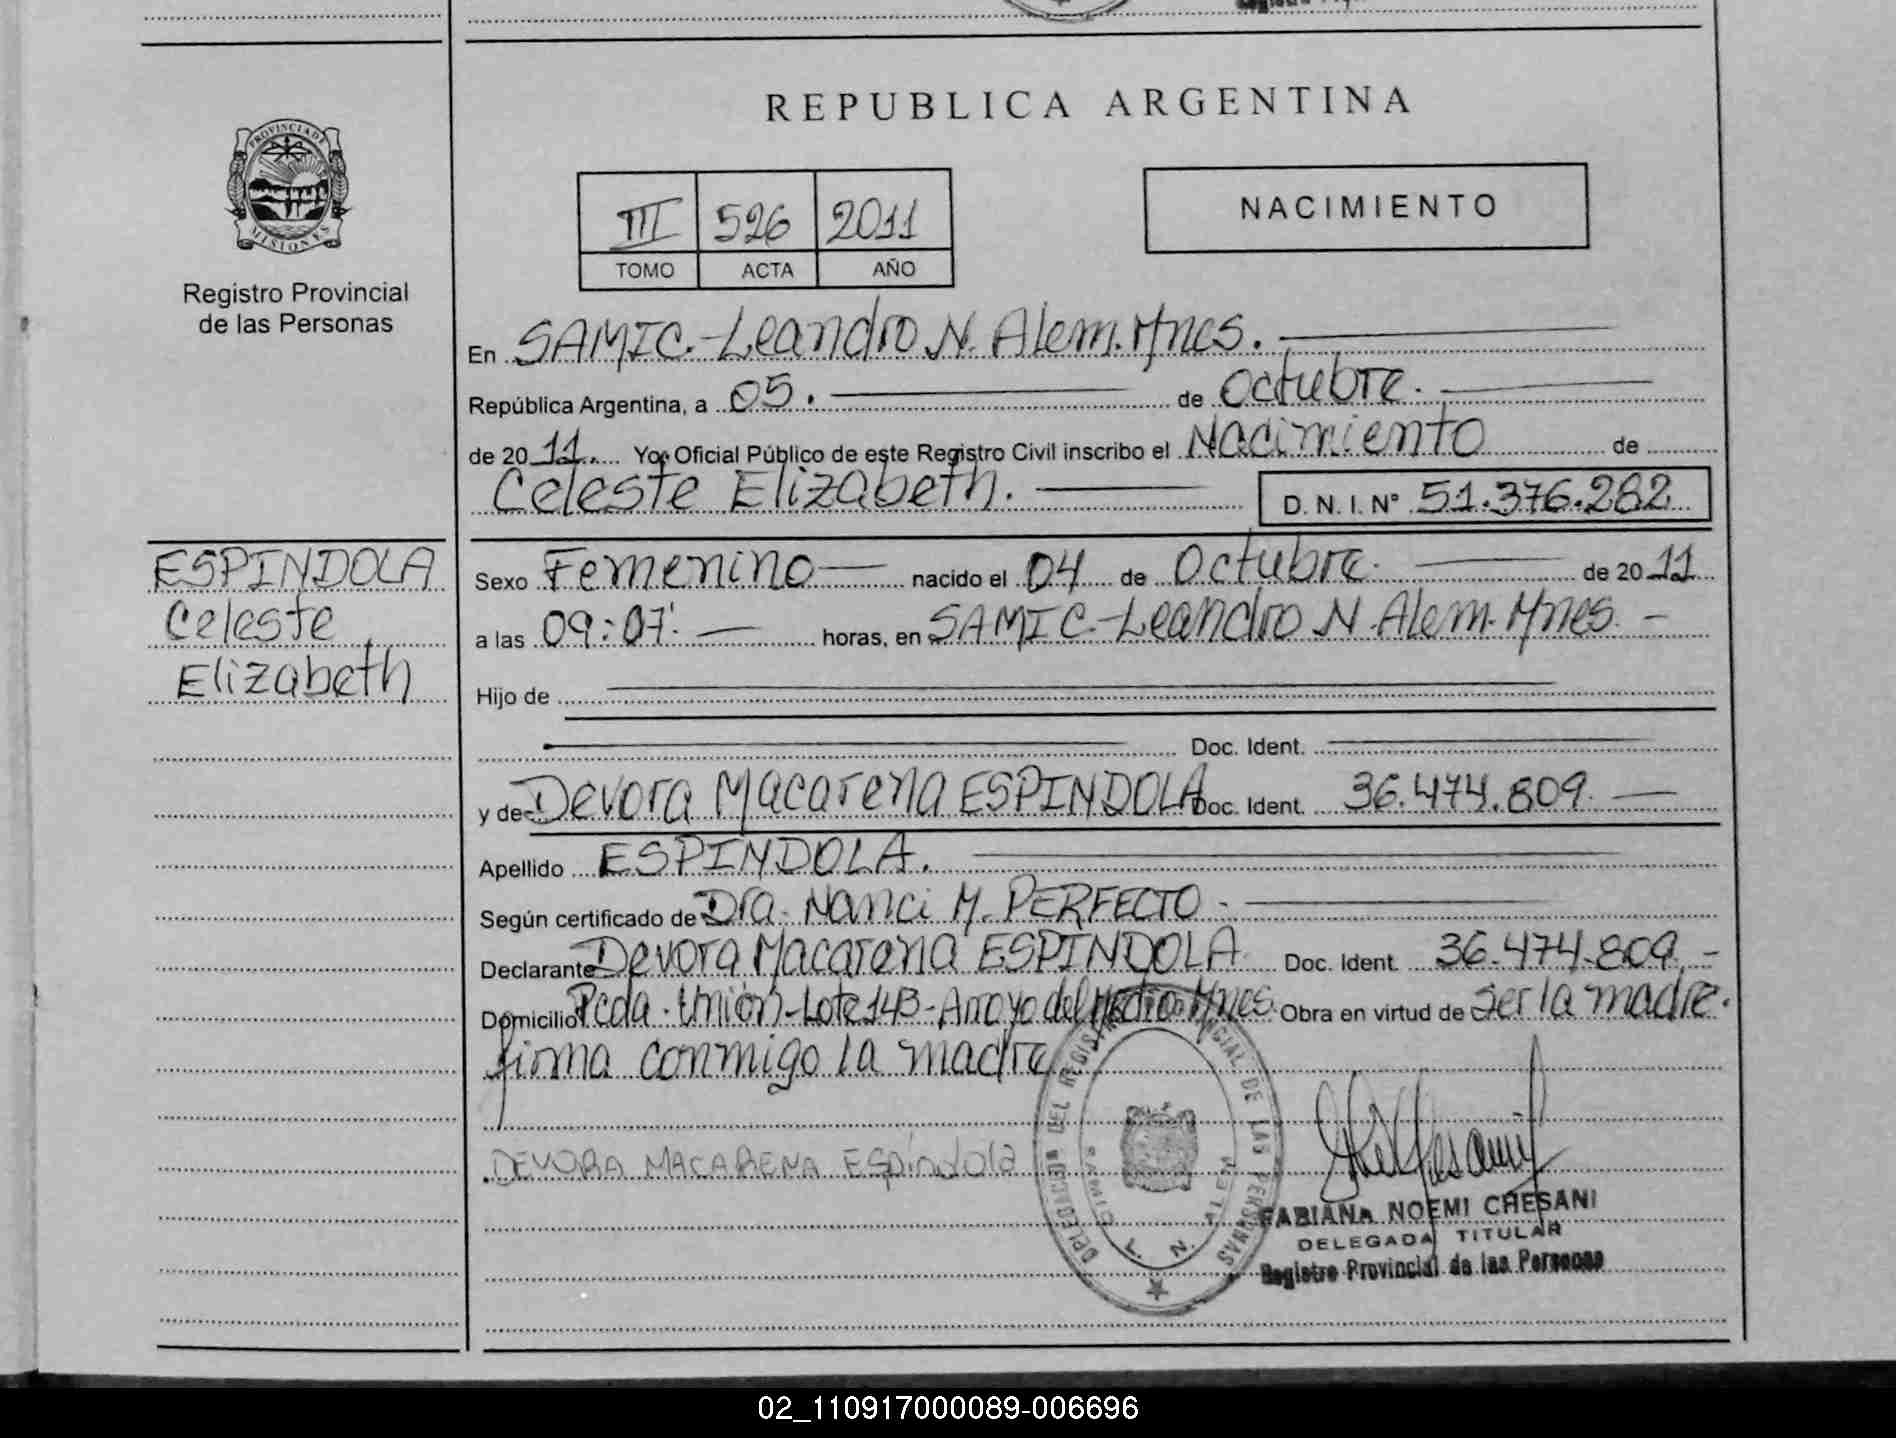 REPUBLICA ARGENTINA
PROVINCIA DE
MISIONES
Registro Provincial
de las Personas
III 526 2011
TOMO ACTA AÑO
NACIMIENTO
En SAMIC.-Leandro N. Alem.Mnes.
República Argentina, a 05. de Octubre.
de 2011. Yo, Oficial Público de este Registro Civil inscribo el Nacimiento de
Celeste Elizabeth. D. N. I. N° 51.376.282
ESPINDOLA
Celeste
Elizabeth
Sexo Femenino nacido el 04 de Octubre. de 2011
a las 09:07'. horas, en SAMIC.-Leandro N. Alem. Mnes. -
Hijo de
Doc. Ident.
y de Devora Macarena ESPINDOLA Doc. Ident. 36.474.809.
Apellido ESPINDOLA.
Según certificado de Dra. Nanci M. PERFECTO -
Declarante Devora Macarena ESPINDOLA Doc. Ident. 36.474.809.-
Domicilio Pcda. Unión-Lote 143-Arroyo del Medio.Mnes. Obra en virtud de ser la madre.
firma conmigo la madre
DEVORA MACARENA Espíndola
DELEGACION DEL REGISTRO PROVINCIAL DE LAS PERSONAS
SAMIC L. N. ALEM
FABIANA NOEMI CHESANI
DELEGADA TITULAR
Registro Provincial de las Personas
02_110917000089-006696